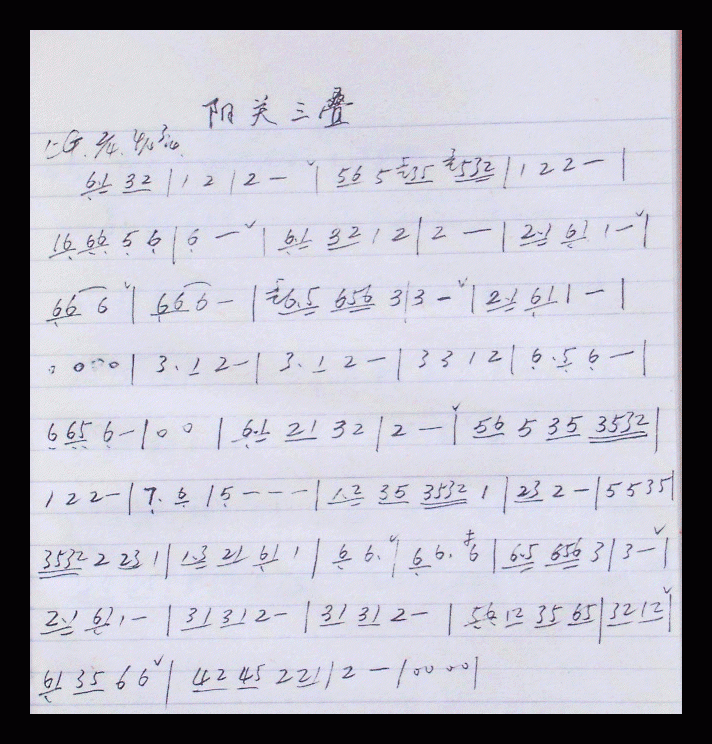 阳关三叠
1=G 2/4 4/4 3/4
6.1 32 | 1 2 | 2 - ˅ | 56 5 35 532 | 1 2 2 - |
16 66 5 6 | 6 - ˅ | 6.1 32 1 2 | 2 - | 2.1 61 1 - ˅ |
66 6 ˅ | 66 6 - | 6.5 656 3 | 3 - ˅ | 2.1 61 1 - |
0 0 0 0 | 3. 1 2 - | 3. 1 2 - | 3 3 1 2 | 6. 5 6 - |
6 65 6 - | 0 0 | 6.1 21 32 | 2 - ˅ | 56 5 35 3532 |
1 2 2 - | 7. 6 | 5 - - - | 1.2 35 3532 1 | 23 2 - | 5 5 35 |
3532 2 23 1 | 1.3 21 61 1 | 6 6. ˅ | 6 6. 6 | 6.5 656 3 | 3 - ˅ |
2.1 61 1 - | 31 31 2 - | 31 31 2 - | 56 12 35 65 | 32 12 ˅ |
61 35 6 6 ˅ | 42 45 2 21 | 2 - | 0 0 0 0 |